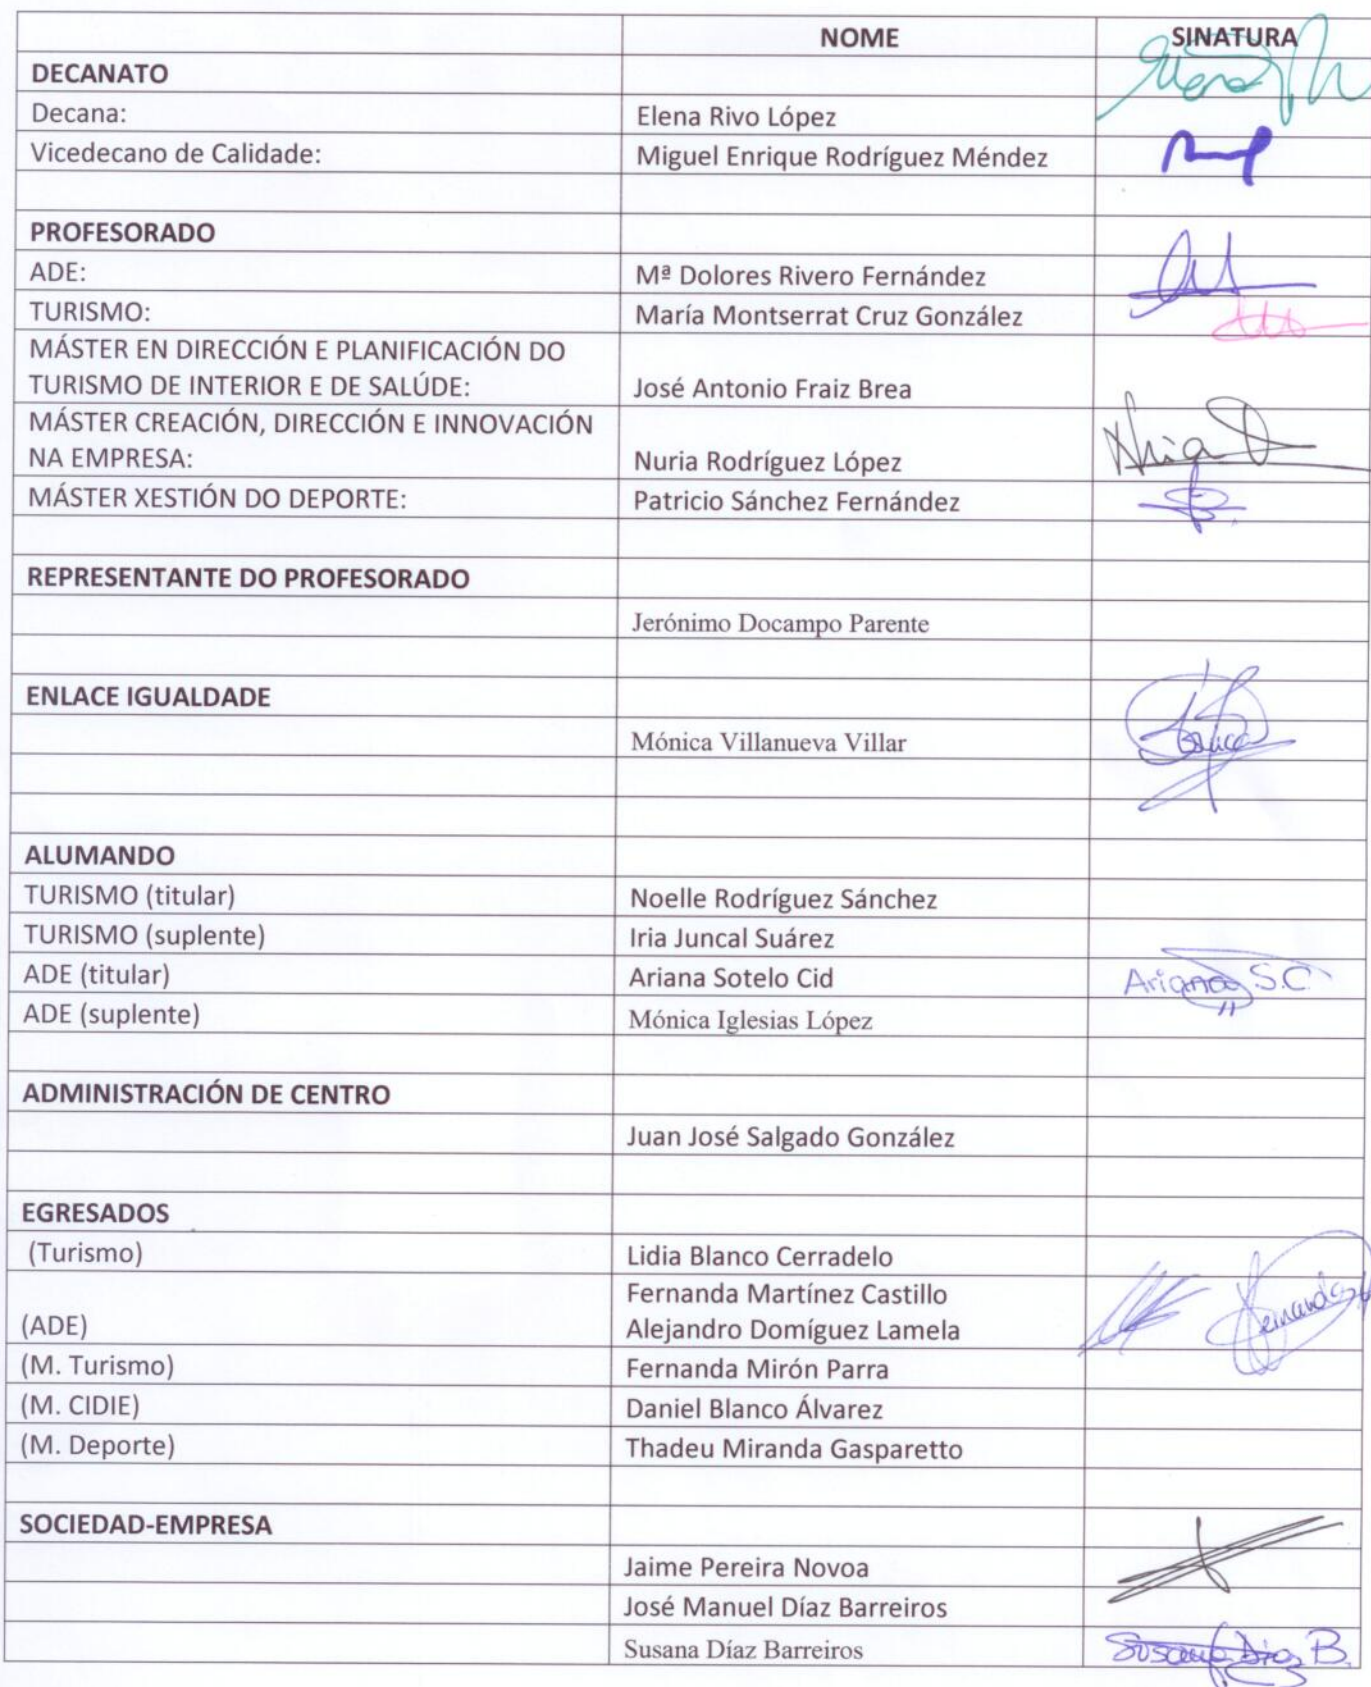 NOME SINATURA
DECANATO
Decana: Elena Rivo López
Vicedecano de Calidade: Miguel Enrique Rodríguez Méndez
PROFESORADO
ADE: Mª Dolores Rivero Fernández
TURISMO: María Montserrat Cruz González
MÁSTER EN DIRECCIÓN E PLANIFICACIÓN DO
TURISMO DE INTERIOR E DE SALÚDE: José Antonio Fraiz Brea
MÁSTER CREACIÓN, DIRECCIÓN E INNOVACIÓN
NA EMPRESA: Nuria Rodríguez López
MÁSTER XESTIÓN DO DEPORTE: Patricio Sánchez Fernández
REPRESENTANTE DO PROFESORADO
Jerónimo Docampo Parente
ENLACE IGUALDADE
Mónica Villanueva Villar
ALUMANDO
TURISMO (titular) Noelle Rodríguez Sánchez
TURISMO (suplente) Iria Juncal Suárez
ADE (titular) Ariana Sotelo Cid Ariana S.C.
ADE (suplente) Mónica Iglesias López
ADMINISTRACIÓN DE CENTRO
Juan José Salgado González
EGRESADOS
(Turismo) Lidia Blanco Cerradelo
Fernanda Martínez Castillo
(ADE) Alejandro Domíguez Lamela
(M. Turismo) Fernanda Mirón Parra
(M. CIDIE) Daniel Blanco Álvarez
(M. Deporte) Thadeu Miranda Gasparetto
SOCIEDAD-EMPRESA
Jaime Pereira Novoa
José Manuel Díaz Barreiros
Susana Díaz Barreiros Susana Díaz B.